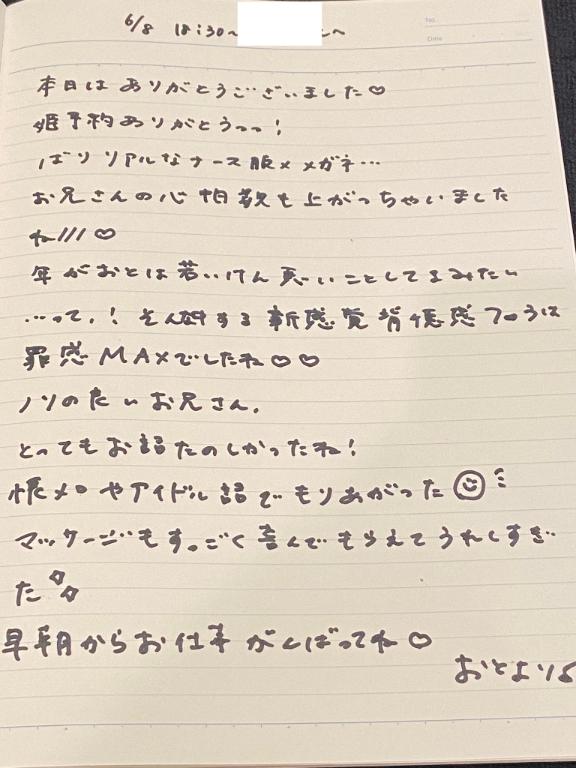 6/8 18:30~ 〜
No.
Date
本日は ありがとうございました♡
姫予約ありがとうっっ!
ばり リアルなナース服×メガネ…
お兄さんの心拍数も上がっちゃいました
ね///♡
年がおとは若いけん悪いことしてるみたい
…って。! そん 新感覚背徳感プロうは
罪感MAXでしたね♡♡
ノリの良いお兄さん。
とってもお話たのしかったね!
懐メロやアイドル話でもりあがった☺
マッサージもすっごく喜んでもらえてうれしすぎ
た
早朝からお仕事がんばってね♡
おとより